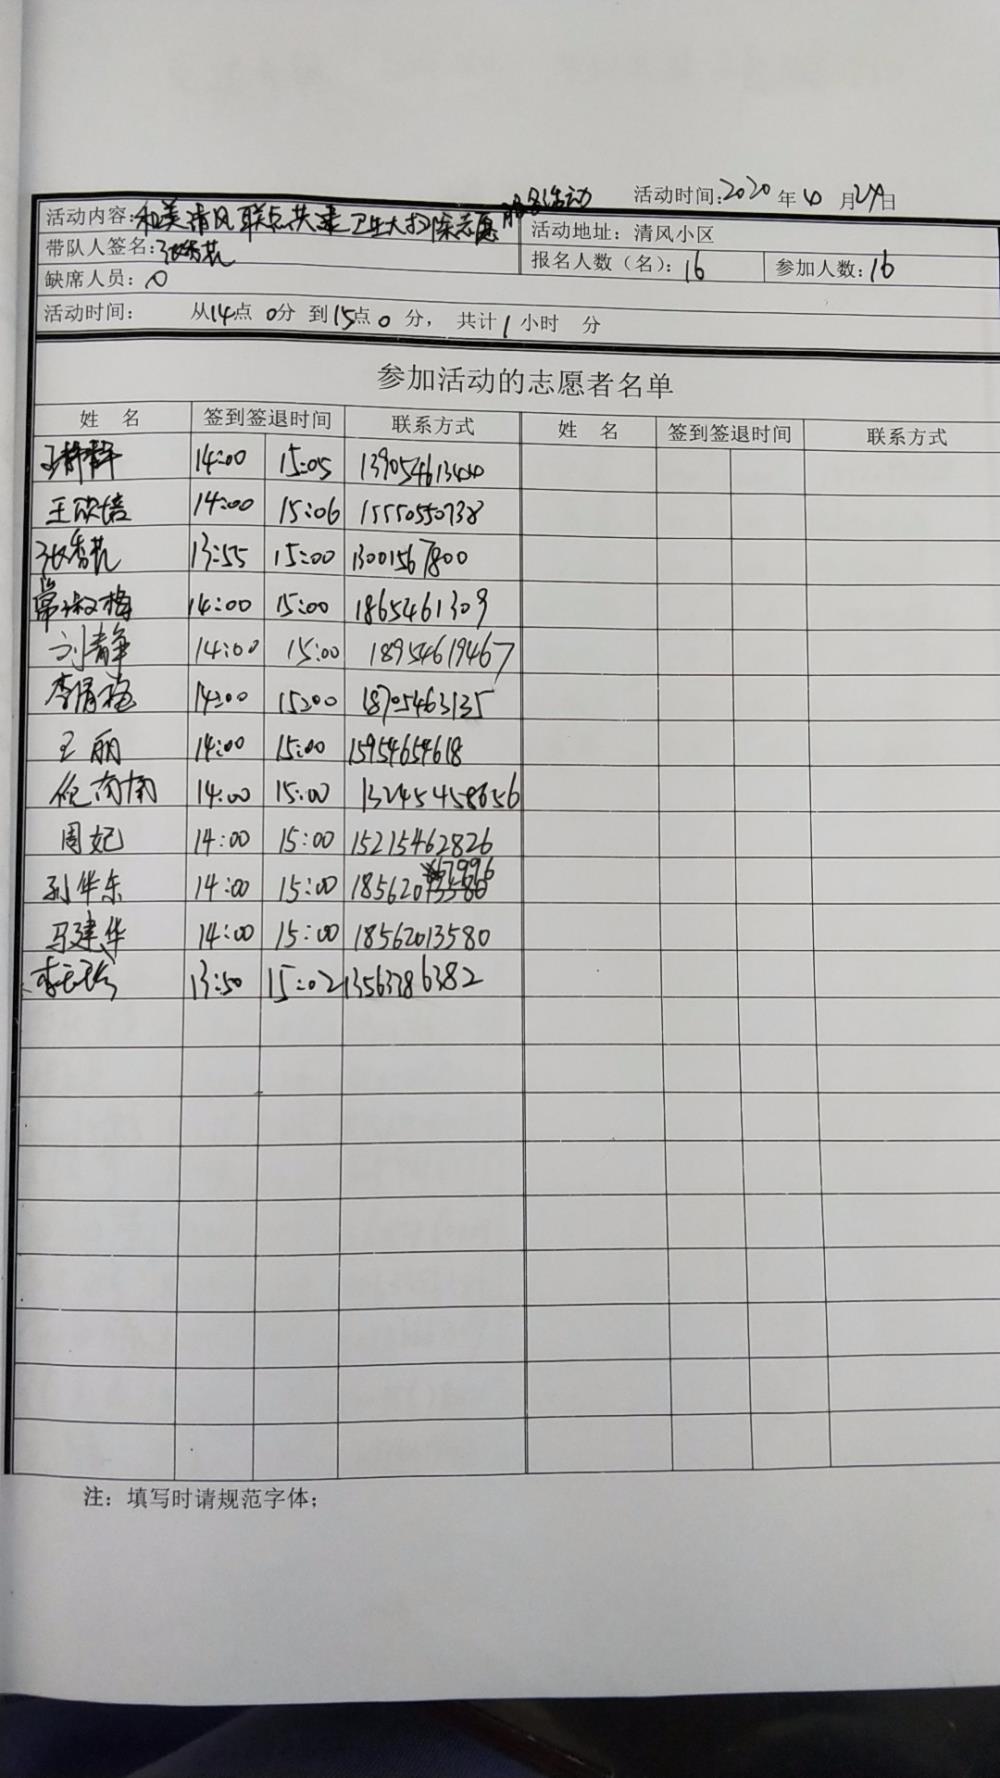 活动时间:2020年4月27日
活动内容:和美清风联点共建卫生大扫除志愿服务活动
活动地址：清风小区
带队人签名:张秀花
报名人数（名）：16 参加人数:16
缺席人员：0
活动时间： 从14点 0分 到15点0 分， 共计1小时 分
参加活动的志愿者名单
姓 名 签到签退时间 联系方式 姓 名 签到签退时间 联系方式
14:00 15:05
王欣培 14:00 15:06 15550550738
张秀花 13:55 15:00 13001567800
常淑梅 14:00 15:00 1865461309
刘青争 14:00 15:00 18954619467
14:00 15:00 18705463135
王丽 14:00 15:00 15954654618
14:00 15:00 132454458656
周妃 14:00 15:00 15215462826
孙华东 14:00 15:00
马建华 14:00 15:00 18562013580
13:50 15:02 13563786382
注：填写时请规范字体；